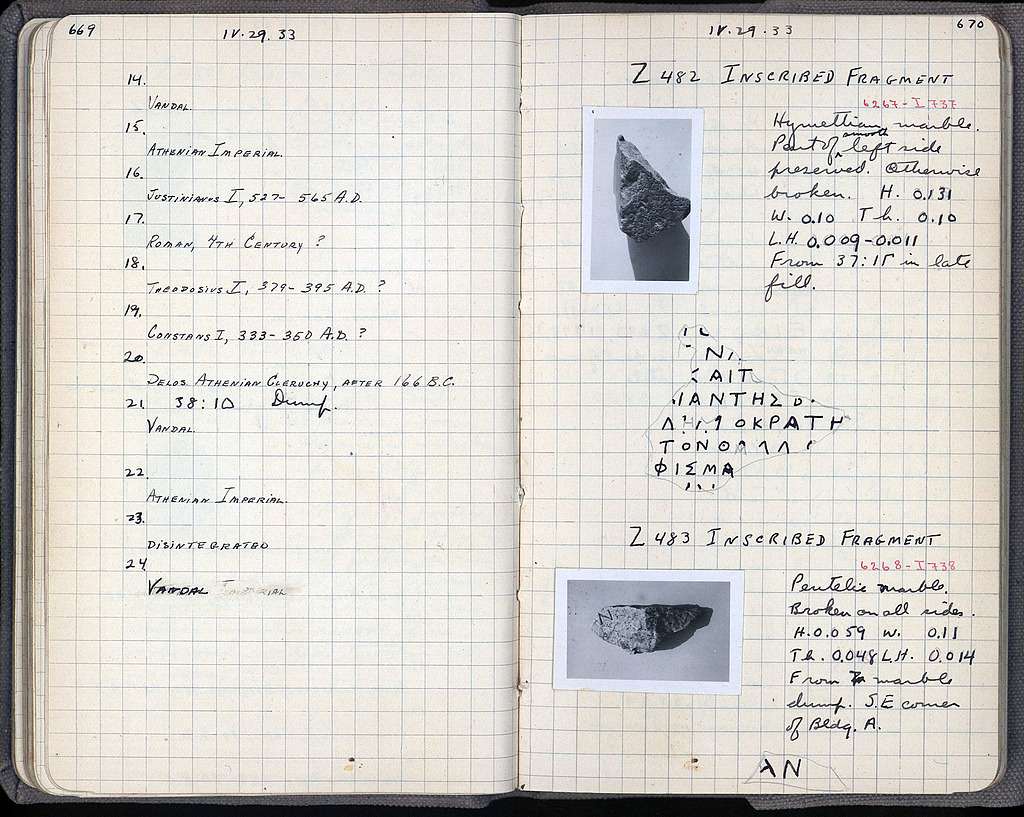 669
IV. 29. 33
14.
VANDAL
15.
ATHENIAN IMPERIAL.
16.
JUSTINIANUS I, 527- 565 A.D.
17.
ROMAN, 4TH CENTURY ?
18.
THEODOSIUS I, 379- 395 A.D. ?
19.
CONSTANS I, 333- 350 A.D. ?
20.
DELOS ATHENIAN CLERUCHY, AFTER 166 B.C.
21. 38:10 Dump.
VANDAL.
22.
ATHENIAN IMPERIAL.
23.
DISINTEGRATED
24
VANDAL
670
IV. 29. 33
Z 482 INSCRIBED FRAGMENT
6267-I 737
Hymettian marble.
Part of smooth left side
preserved. Otherwise
broken. H. 0.131
W. 0.10 Th. 0.10
L.H. 0.009-0.011
From 37: in late
fill.
ΝΙ
ΑΙΤ
ΙΑΝΤΗΣ
ΟΚΡΑΤΗ
ΤΟΝΟ
ΦΙΣΜΑ
Z 483 INSCRIBED FRAGMENT
6268-I 738
Pentelic marble.
Broken on all sides.
H. 0.059 W. 0.11
Th. 0.048 L.H. 0.014
From marble
dump. S.E corner
of Bldg. A.
ΑΝ